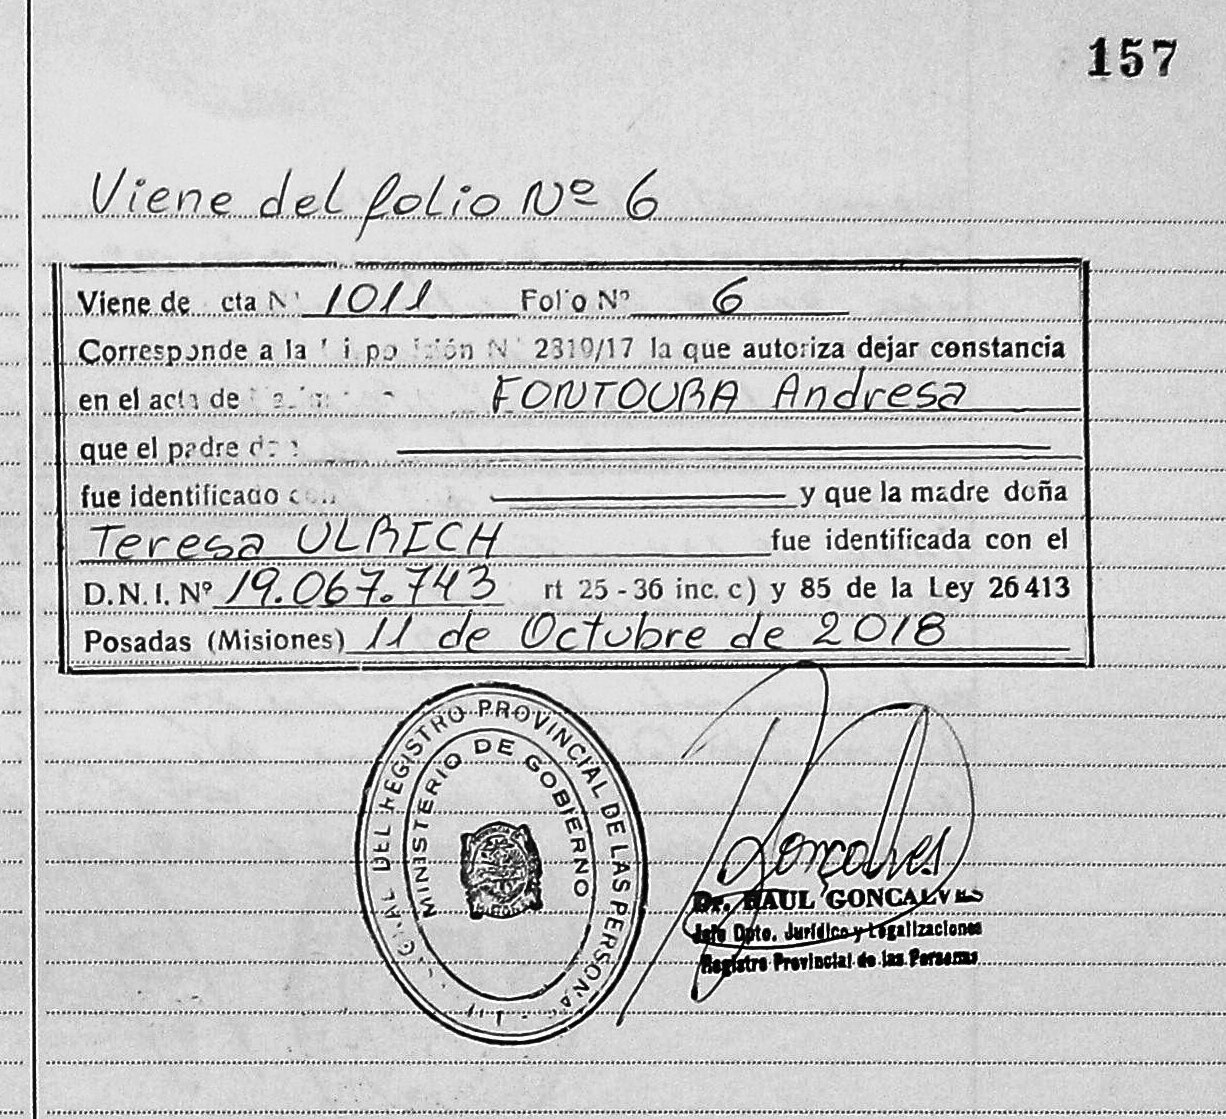 157
Viene del folio Nº 6
Viene de cta N° 1011 Folio Nº 6
Corresponde a la 2319/17 la que autoriza dejar constancia
en el acta de FONTOURA Andresa
que el padre
fue identificado y que la madre doña
Teresa ULRICH fue identificada con el
D.N.I. Nº 19.067.743 rt 25 - 36 inc. c) y 85 de la Ley 26413
Posadas (Misiones) 11 de Octubre de 2018
DEL REGISTRO PROVINCIAL DE LAS PERSONAS
MINISTERIO DE GOBIERNO
Gonçalves
Dr. RAUL GONCALVES
Jefe Dpto. Jurídico y Legalizaciones
Registro Provincial de las Personas